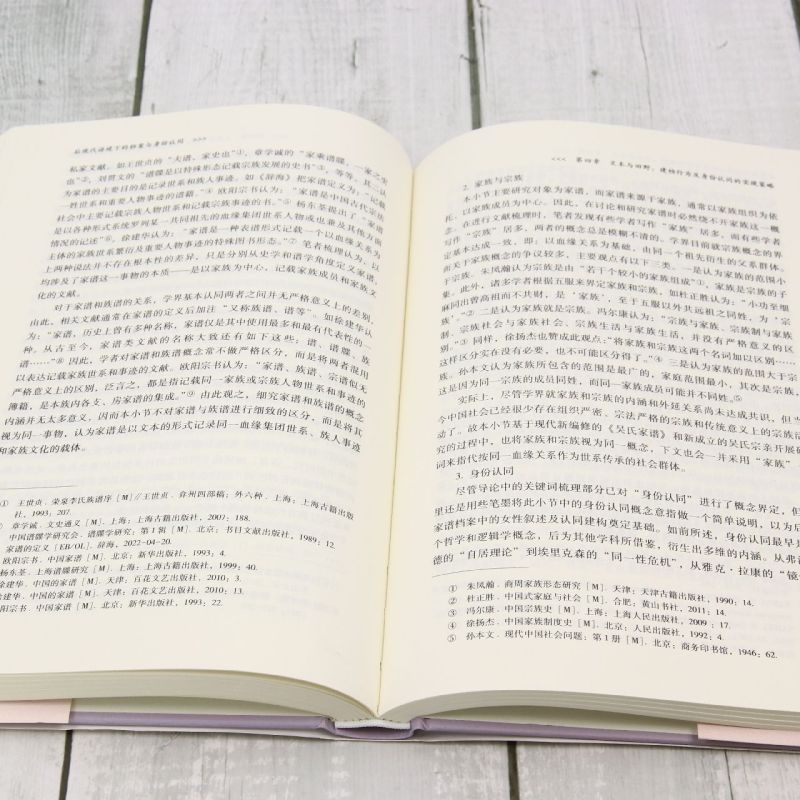 后现代语境下的档案与身份认同 >>>
私家文献。如王世贞的“夫谱,家史也”①,章学诚的“家乘谱牒,一家之史
也”②,刘贯文的“谱牒是以特殊形态记载宗族发展的史书”③,等等,其一认
为家谱的主要目的是记录世系和族人事迹。如《辞海》把家谱定义为:“记载
一姓世系和重要人物事迹的谱籍。”④欧阳宗书认为:“家谱是中国古代宗法
社会中主要记载宗族人物世系和记载宗族事迹的书。”⑤杨东荃提出了“家谱
是以各种形式系统罗列某一共同祖先的血缘集团世系人物或也兼及其他方面
情况的记述”⑥,徐建华认为:“家谱是一种表谱形式记载一个以血缘关系为
主体的家族世系繁衍及重要人物事迹的特殊图书形态。”⑦笔者梳理认为,以
上两种说法并不存在根本性的差异,只是分别从史学和谱学角度定义家谱,
均涉及了家谱这一事物的本质——是以家族为中心,记载家族成员和家族文
化的文献。
对于家谱和族谱的关系,学界基本认同两者之间并无严格意义上的差别,
由此,相关文献通常在家谱的定义后加注“又称族谱、谱等”。如徐建华认
为:“家谱,历史上曾有多种名称,家谱仅是其中使用最多和最有代表性的一
种。从古至今,家谱类文献的名称大致还有如下这些:谱、谱牒、族
谱……”⑧因此,学者对家谱和族谱概念常不做严格区分,而是将两者混用
以表达记载家族世系和事迹的文献。欧阳宗书认为:“家谱、族谱、宗谱似无
严格意义上的区别,泛言之,都是指记载同一家族或宗族人物世系和事迹的
簿籍,是本族内各支、房家谱的集成。”⑨由此观之,细究家谱和族谱的概念
内涵并无太多意义,因而本小节不对家谱与族谱进行细致的区分,而是将其
视为同一事物,认为家谱是以文本的形式记录同一血缘集团世系、族人事迹
和家族文化的载体。
① 王世贞．荣泉李氏族谱序［M］//王世贞．弇州四部稿:外六种．上海:上海古籍出版
社,1993:207.
② 章学诚．文史通义［M］．上海:上海古籍出版社,2007:188.
中国谱牒学研究会．谱牒学研究:第1辑［M］．北京:书目文献出版社,1989:12.
家谱的定义［EB/OL］．辞海,2022-04-20.
欧阳宗书．中国家谱［M］．北京:新华出版社,1993:4.
杨东荃．上海谱牒研究［M］．上海:上海古籍出版社,1999:40.
徐建华．中国的家谱［M］．天津:百花文艺出版社,2010:3.
徐建华．中国的家谱［M］．天津:百花文艺出版社,2010:13.
欧阳宗书．中国家谱［M］．北京:新华出版社,1993:22.
<<< 第四章 文本与田野,建档行为及身份认同的实践策略
2. 家族与宗族
本小节主要研究对象为家谱,而家谱来源于家族,通常以家族组织为依
托,以家族成员为中心。因此,在讨论和研究家谱时必然绕不开家族这一概
念。在进行文献梳理时,笔者发现有些学者写作“家族”居多,而有些学者
写作“宗族”居多,两者的概念总是模糊不清的。学界目前就宗族概念的界
定基本达成一致,即:以血缘关系为基础,由同一个祖先衍生的父系群体。
而关于家族概念的争议较多,主要观点有以下三类。一是认为家族的范围小
于宗族。朱凤瀚认为宗族是由“若干个较小的家族组成”①,家族是宗族的子
集。此外,诸多学者根据五服来界定家族和宗族,如杜正胜认为:“小功至缌
麻同出曾高祖而不共财,是‘家族’,至于五服以外共远祖之同姓,为‘宗
族’。”②二是认为家族就是宗族。冯尔康认为:“宗族与家族、宗族制与家族
制、宗族社会与家族社会、宗族生活与家族生活,并没有严格意义的区
别。”③同样,徐扬杰也赞成此观点:“将家族和宗族这两个名词加以区别……
这样区分实在没有必要,也不可能区分得了。”④三是认为家族的范围大于宗
族。孙本文认为家族所包含的范围是最广的,家庭范围最小,其次是宗族,
这是因为同一宗族的成员同姓,而同一家族成员可能并不同姓。⑤
实际上,尽管学界就家族和宗族的内涵和外延关系尚未达成共识,但当
今中国社会已经很少存在组织严密、宗法严格的宗族和传统意义上的宗族活
动了。故本小节基于现代新编修的《吴氏家谱》和新成立的吴氏宗亲开展研
究的过程中,也将家族和宗族视为同一概念,下文也会一并采用“家族”一
词来指代按同一血缘关系作为世系传承的社会群体。
3. 身份认同
尽管导论中的关键词梳理部分已对“身份认同”进行了概念界定,但
里还是用些笔墨将此小节中的身份认同概念意指做一个简单说明,以为后
家谱档案中的女性叙述及认同建构奠定基础。如前所述,身份认同最早是
个哲学和逻辑学概念,后为其他学科所借鉴,衍生出多维的内涵。从弗洛
德的“自居理论”到埃里克森的“同一性危机”,从雅克·拉康的“镜
① 朱凤瀚．商周家族形态研究［M］．天津:天津古籍出版社,1990:14.
② 杜正胜．中国式家庭与社会［M］．合肥:黄山书社,2011:14.
③ 冯尔康．中国宗族史［M］．上海:上海人民出版社,2009:17.
④ 徐扬杰．中国家族制度史［M］．北京:人民出版社,1992:4.
⑤ 孙本文．现代中国社会问题:第1册［M］．北京:商务印书馆,1946:62.